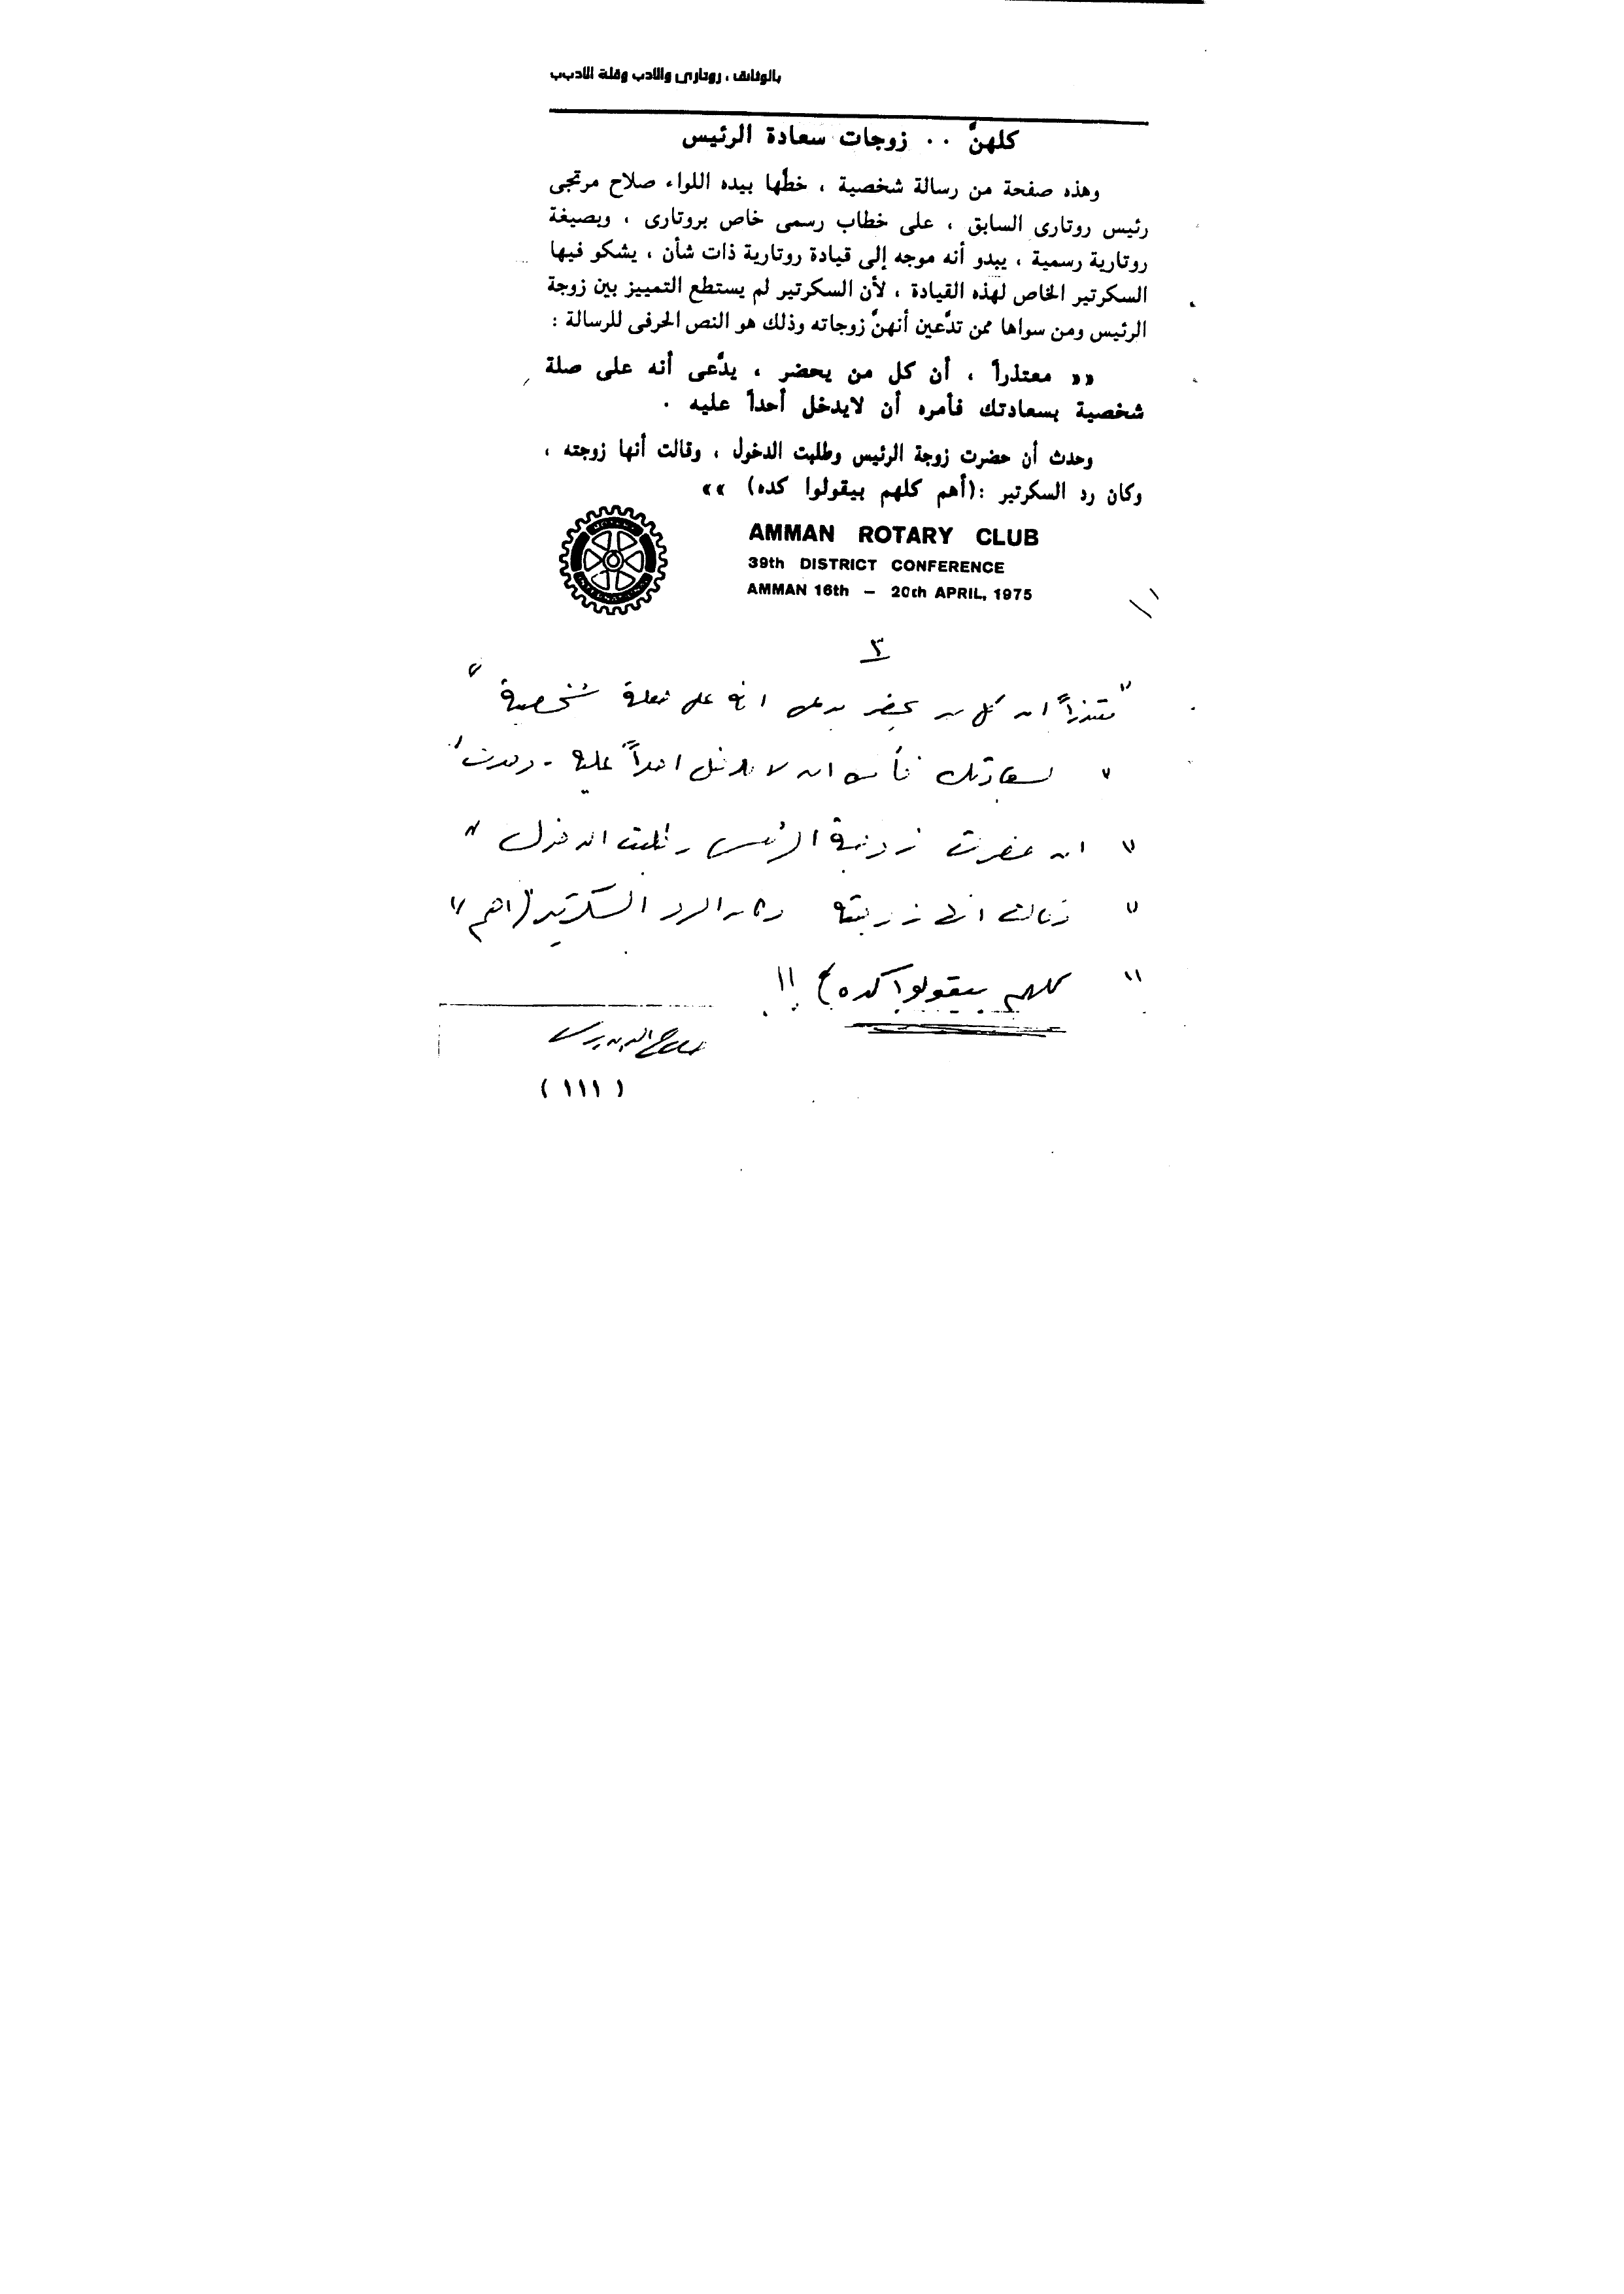 بالوثائق ، روتارى والأدب وقلة الأدب
كلهنَّ .. زوجات سعادة الرئيس
وهذه صفحة من رسالة شخصية ، خطَّها بيده اللواء صلاح مرتجى
رئيس روتارى السابق ، على خطاب رسمى خاص بروتارى ، وبصيغة
روتارية رسمية ، يبدو أنه موجه إلى قيادة روتارية ذات شأن ، يشكو فيها
السكرتير الخاص لهذه القيادة ، لأن السكرتير لم يستطع التمييز بين زوجة
الرئيس ومن سواها ممن تدَّعين أنهنَّ زوجاته وذلك هو النص الحرفى للرسالة :
«« معتذراً ، أن كل من يحضر ، يدَّعى أنه على صلة
شخصية بسعادتك فأمره أن لايدخل أحداً عليه .
وحدث أن حضرت زوجة الرئيس وطلبت الدخول ، وقالت أنها زوجته ،
وكان رد السكرتير :(أهم كلهم بيقولوا كده) »»
AMMAN ROTARY CLUB
39th DISTRICT CONFERENCE
AMMAN 16th – 20th APRIL, 1975
٣
" معتذراً ان كل من يحضر يدعى انه على صلة شخصية "
" بسعادتك فأمره ان لا يدخل احداً عليه - وحدث "
" ان حضرت زوجة الرئيس وطلبت الدخول "
" وقالت انها زوجته وكان الرد السكرتير (اهم "
" كلهم بيقولوا كده) !!
(١١١)